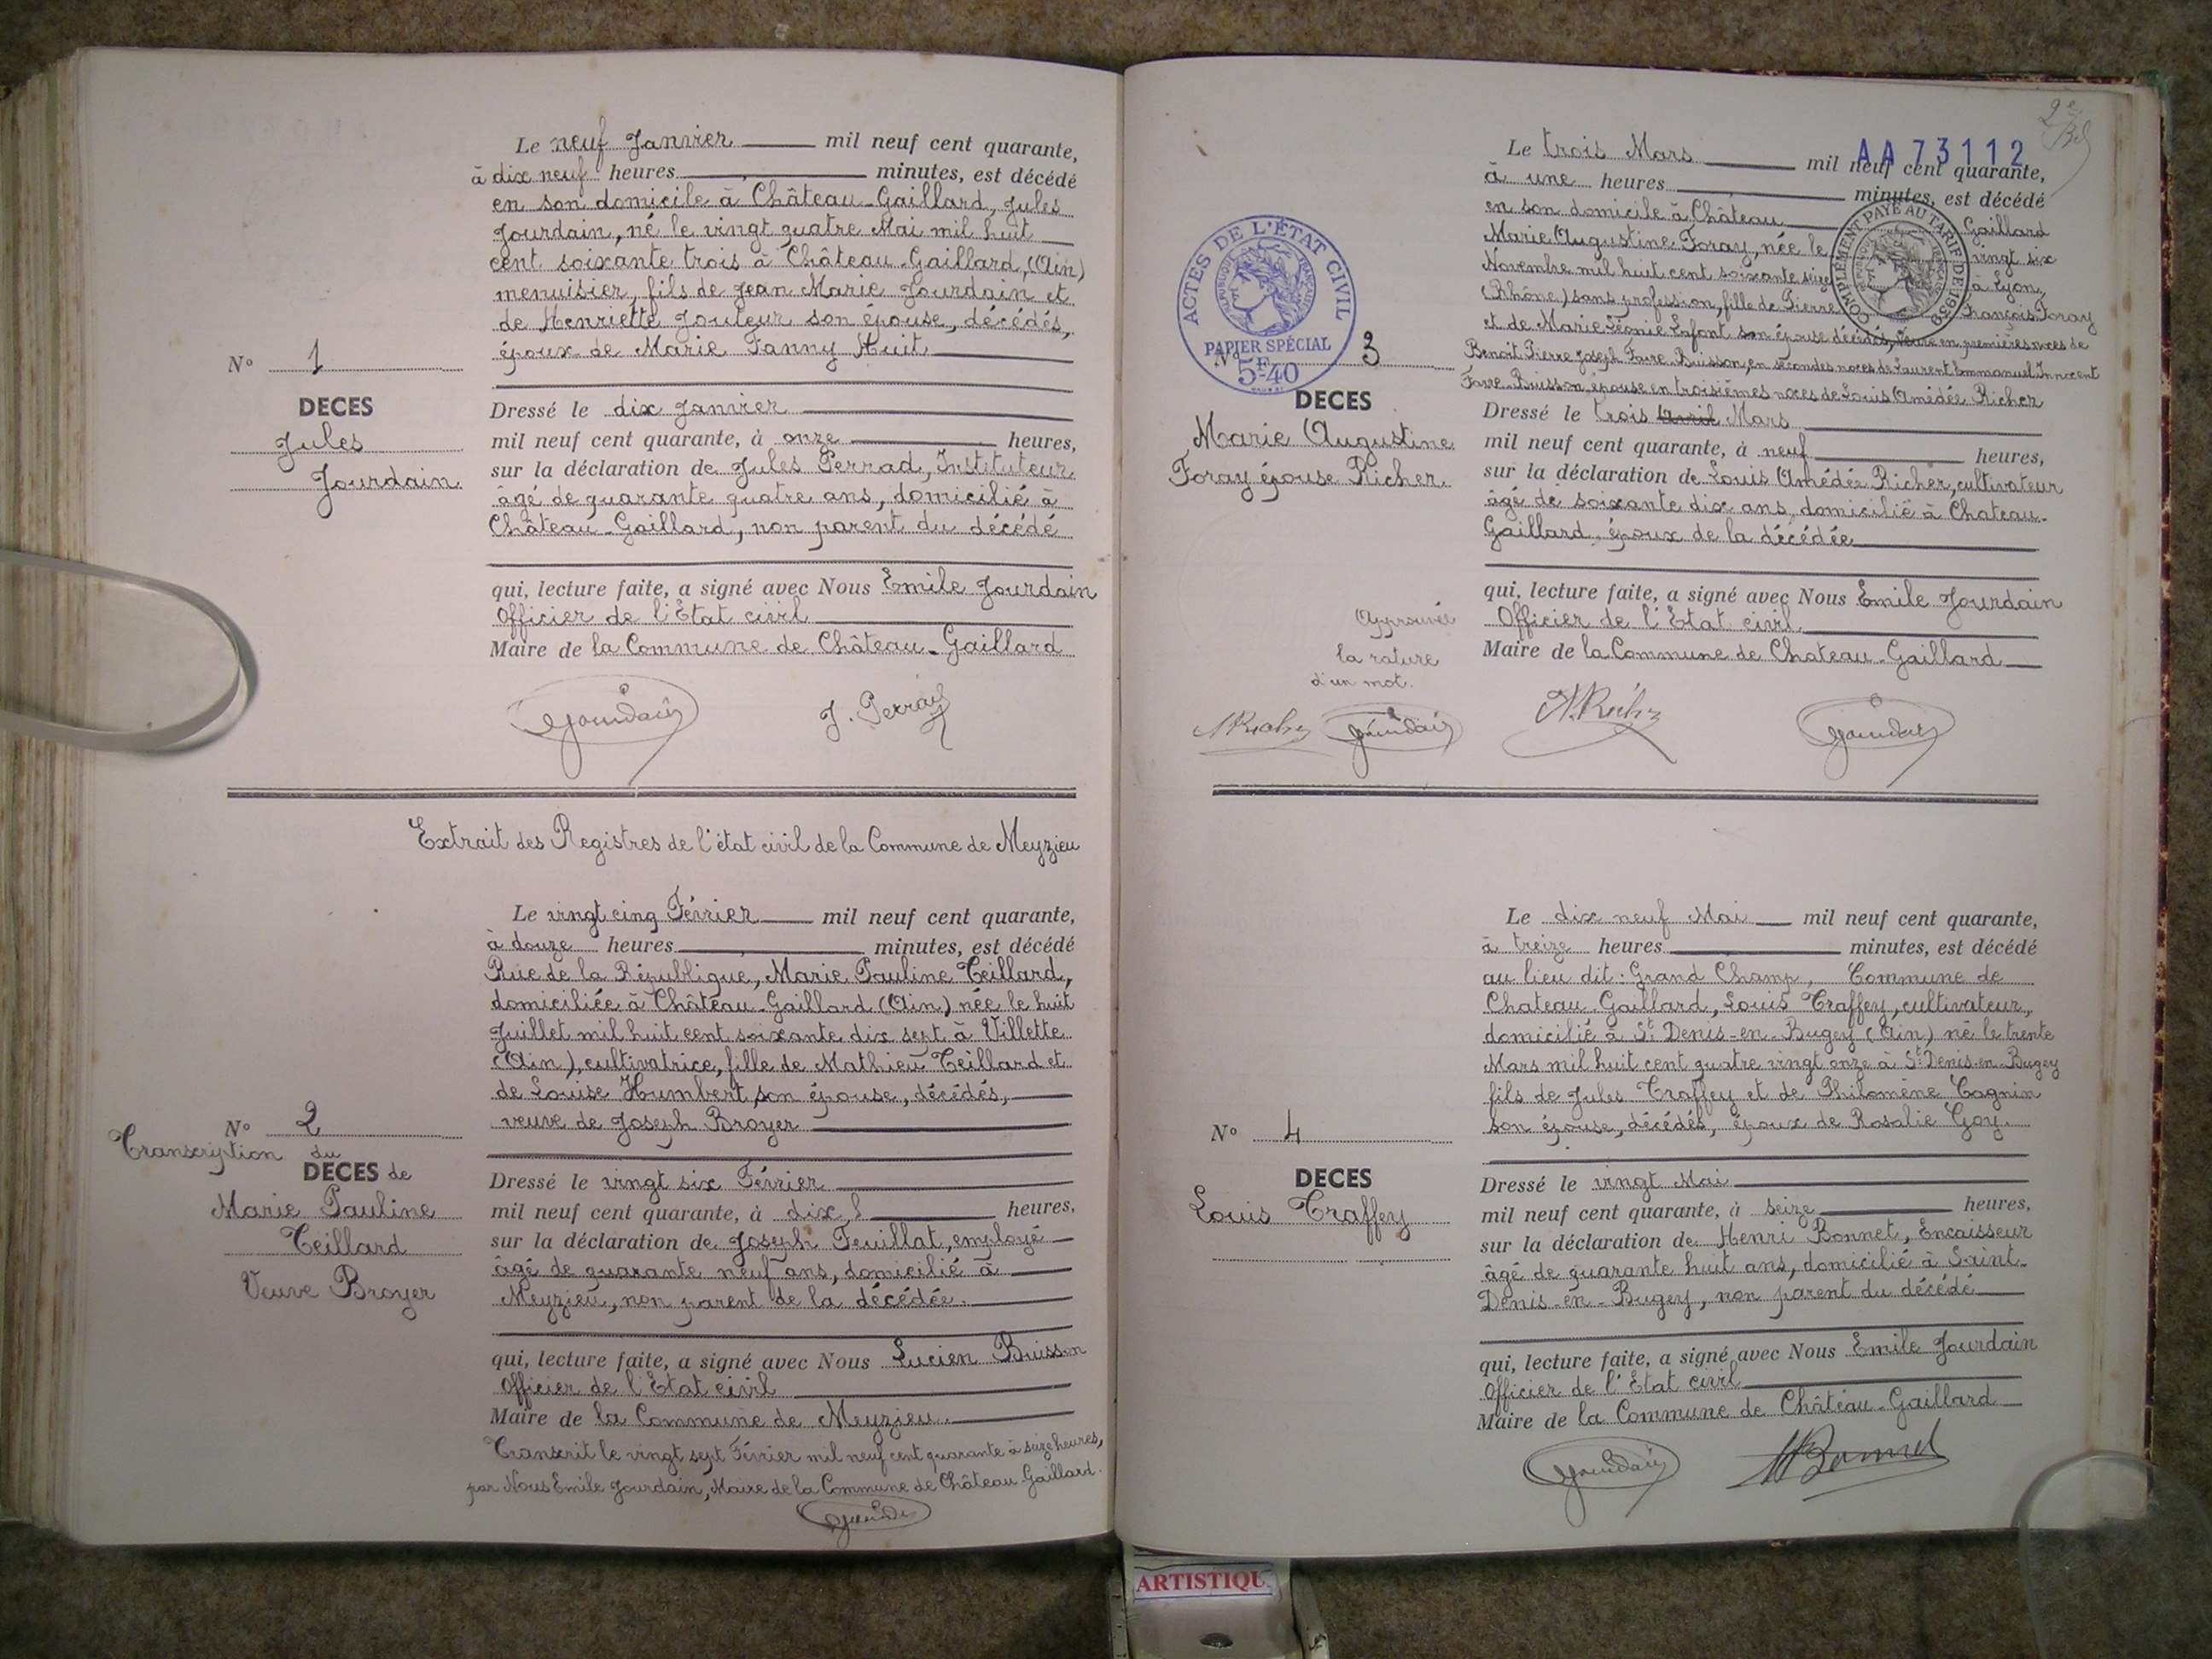 Le neuf Janvier mil neuf cent quarante,
à dix neuf heures minutes, est décédé
en son domicile à Château-Gaillard, Jules
Jourdain, né le vingt quatre Mai mil huit
cent soixante trois à Château-Gaillard, (Ain)
menuisier, fils de Jean Marie Jourdain et
de Henriette Jouteur son épouse, décédés,
époux de Marie Fanny Huit
N° 1
DECES
Jules
Jourdain
Dressé le dix Janvier
mil neuf cent quarante, à onze heures,
sur la déclaration de Jules Perrad, Instituteur
âgé de quarante quatre ans, domicilié à
Château-Gaillard, non parent du décédé
qui, lecture faite, a signé avec Nous Emile Jourdain
Officier de l'Etat civil
Maire de la Commune de Château-Gaillard
Jourdain J. Perrad
Extrait des Registres de l'état civil de la Commune de Meyzieu
Le vingt cinq Février mil neuf cent quarante,
à douze heures minutes, est décédé
Rue de la République, Marie Pauline Teillard,
domiciliée à Château-Gaillard (Ain) née le huit
Juillet mil huit cent soixante dix sept à Villette
(Ain), cultivatrice, fille de Mathieu Teillard et
de Louise Humbert son épouse, décédés,
veuve de Joseph Broyer
N° 2
Transcription du
DECES de
Marie Pauline
Teillard
Veuve Broyer
Dressé le vingt six Février
mil neuf cent quarante, à dix heures,
sur la déclaration de Joseph Feuillat, employé
âgé de quarante neuf ans, domicilié à
Meyzieu, non parent de la décédée.
qui, lecture faite, a signé avec Nous Lucien Buisson
Officier de l'Etat civil
Maire de la Commune de Meyzieu.
Transcrit le vingt sept Février mil neuf cent quarante à seize heures,
par Nous Emile Jourdain, Maire de la Commune de Château Gaillard.
Jourdain
2e
AA 73112
Le trois Mars mil neuf cent quarante,
à une heures minutes, est décédé
en son domicile à Château Gaillard
Marie Augustine Foray, née le vingt six
Novembre mil huit cent soixante seize à Lyon
(Rhône) sans profession, fille de Pierre François Foray
et de Marie Léonie Lafont son épouse décédés, veuve en premières noces de
Benoit Pierre Joseph Favre-Buisson, en secondes noces de Laurent Emmanuel Innocent
Favre-Buisson, épouse en troisièmes noces de Louis Amédée Richer
COMPLÉMENT PAYÉ AU TARIF DE 1939
ACTES DE L'ÉTAT CIVIL
RÉPUBLIQUE FRANÇAISE
PAPIER SPÉCIAL
5F-40
N° 3
DECES
Marie Augustine
Foray épouse Richer
Dressé le trois Avril Mars
mil neuf cent quarante, à neuf heures,
sur la déclaration de Louis Amédée Richer, cultivateur
âgé de soixante dix ans, domicilié à Chateau-
Gaillard, époux de la décédée
qui, lecture faite, a signé avec Nous Emile Jourdain
Officier de l'Etat civil
Maire de la Commune de Chateau-Gaillard
Approuvé
la rature
d'un mot.
A Richer Jourdain A. Richer Jourdain
Le dix neuf Mai mil neuf cent quarante,
à treize heures minutes, est décédé
au lieu dit: Grand Champ, Commune de
Chateau-Gaillard, Louis Traffey, cultivateur,
domicilié à St Denis-en-Bugey (Ain) né le trente
Mars mil huit cent quatre vingt onze à St Denis-en-Bugey
fils de Jules Traffey et de Philomène Cagnin
son épouse, décédés, époux de Rosalie Goy.
N° 4
DECES
Louis Traffey
Dressé le vingt Mai
mil neuf cent quarante, à seize heures,
sur la déclaration de Henri Bonnet, Encaisseur
âgé de quarante huit ans, domicilié à Saint-
Denis-en-Bugey, non parent du décédé
qui, lecture faite, a signé avec Nous Emile Jourdain
Officier de l'Etat civil
Maire de la Commune de Château-Gaillard
Jourdain H Bonnet
ARTISTIQU